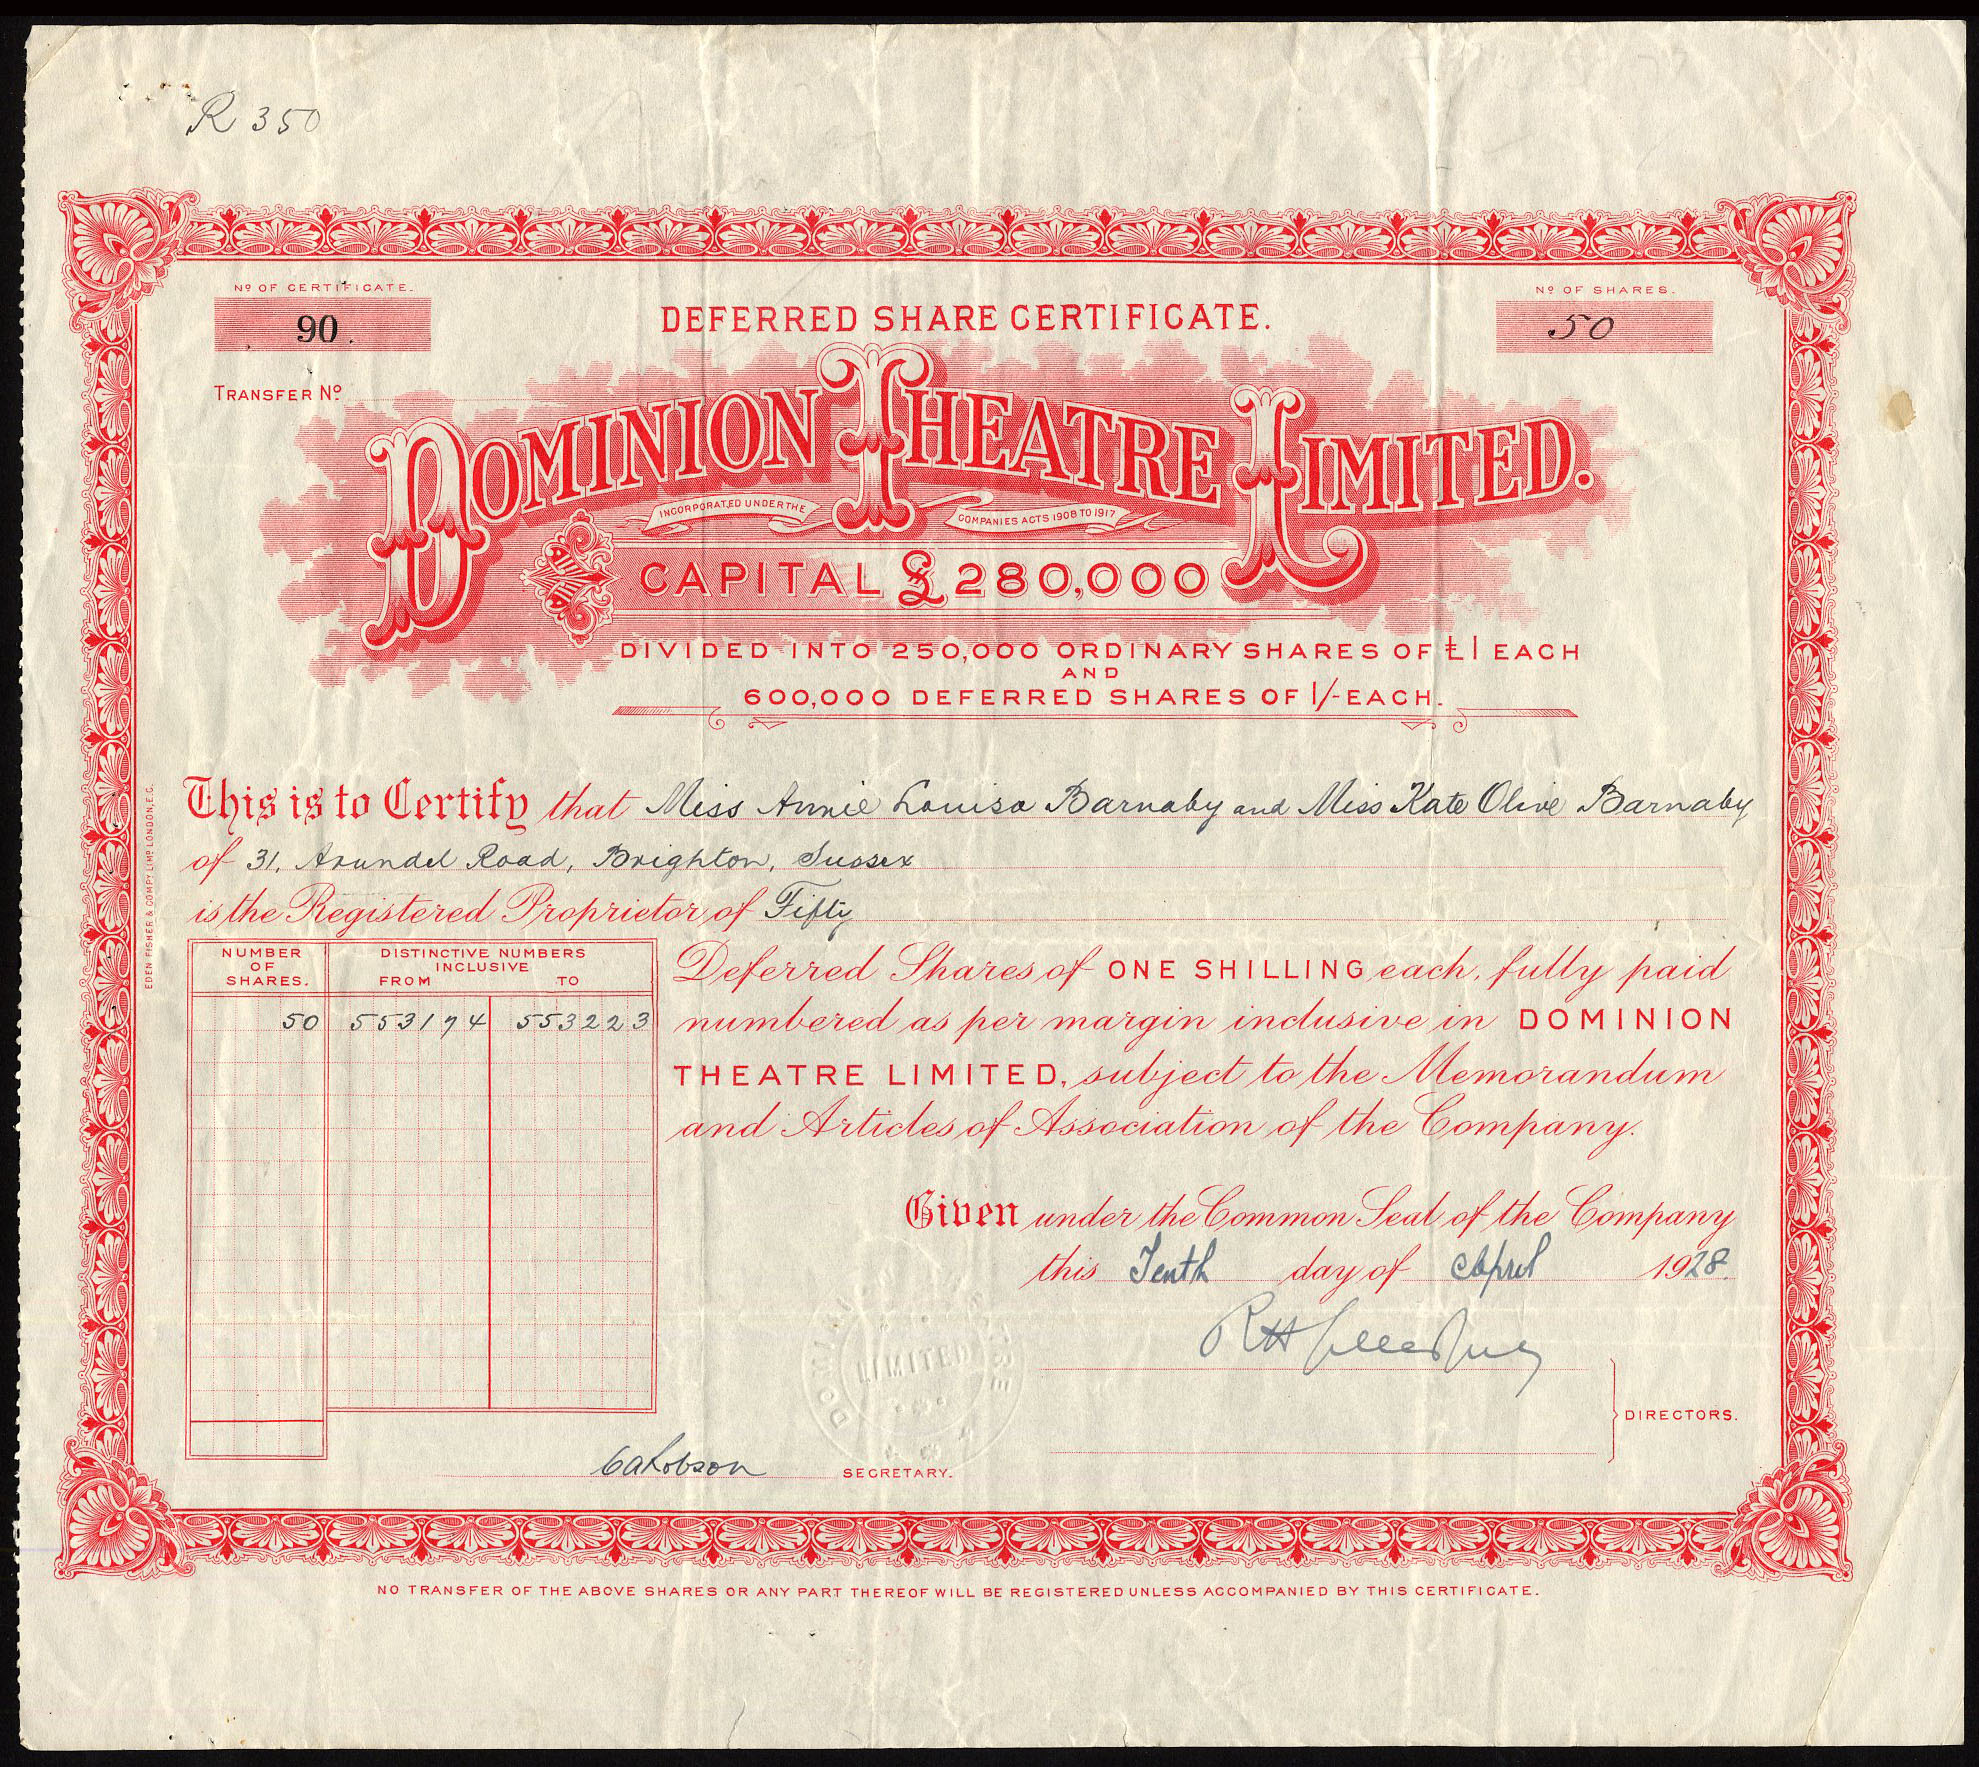 R 350
Nº OF CERTIFICATE.
90.
DEFERRED SHARE CERTIFICATE.
Nº OF SHARES.
50
TRANSFER Nº
DOMINION THEATRE LIMITED.
INCORPORATED UNDER THE COMPANIES ACTS 1908 TO 1917
CAPITAL £280,000
DIVIDED INTO 250,000 ORDINARY SHARES OF £1 EACH
AND
600,000 DEFERRED SHARES OF 1/- EACH.
This is to Certify that Miss Annie Louisa Barnaby and Miss Kate Olive Barnaby
of 31, Arundel Road, Brighton, Sussex
is the Registered Proprietor of Fifty
NUMBER OF SHARES.
DISTINCTIVE NUMBERS
INCLUSIVE
FROM TO
50 553174 553223
Deferred Shares of ONE SHILLING each, fully paid
numbered as per margin inclusive in DOMINION
THEATRE LIMITED, subject to the Memorandum
and Articles of Association of the Company.
Given under the Common Seal of the Company
this Tenth day of April 1928.
DIRECTORS.
SECRETARY.
LIMITED
EDEN FISHER & COMPY LIMD LONDON, E.C.
NO TRANSFER OF THE ABOVE SHARES OR ANY PART THEREOF WILL BE REGISTERED UNLESS ACCOMPANIED BY THIS CERTIFICATE.